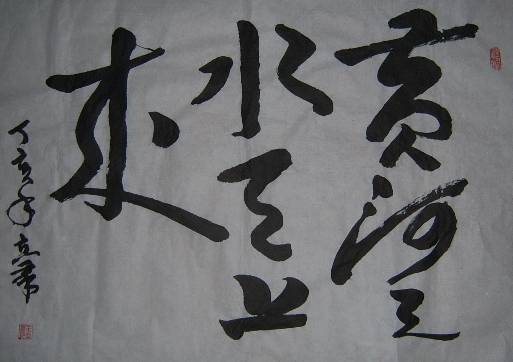 黄河之
水天上
来
丁亥年立第